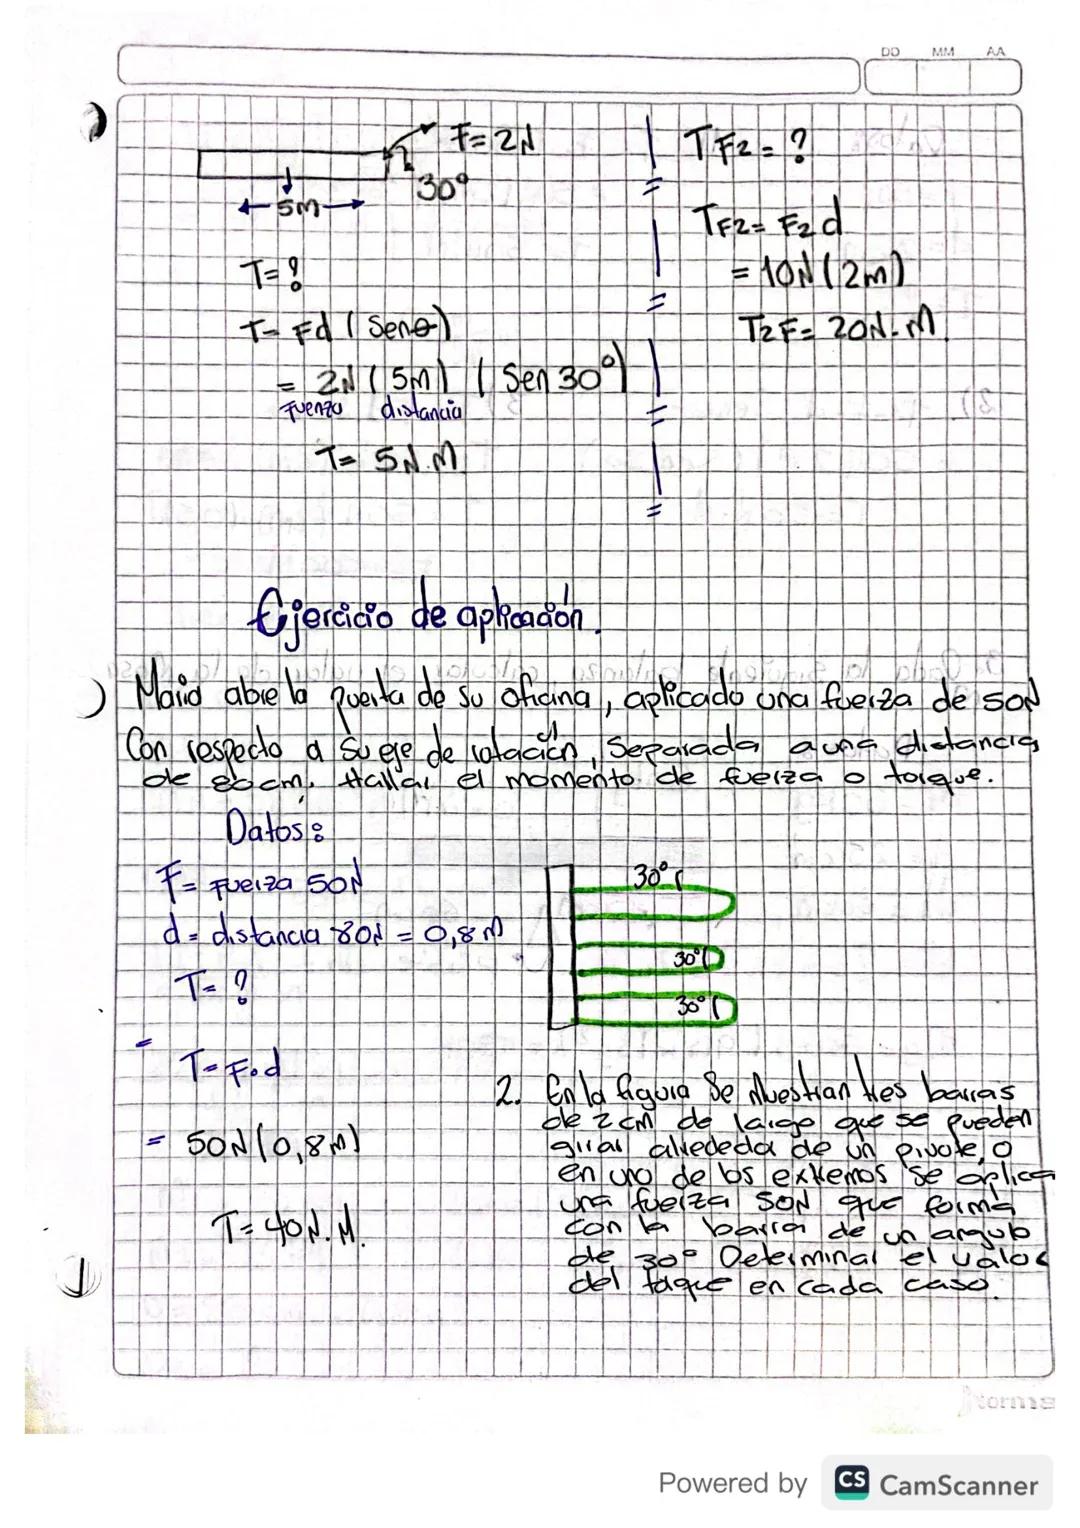 DD MM AA
F= 2N
30°
5m
T= ?
T= Fd (Senθ)
= 2N (5m) (Sen 30°)
Fuerza distancia
T= 5N.M
TF2= ?
TF2= F2 d
= 10N (2m)
T2F= 20N.M.
Ejercicio de aplicación.
) Maria abre la puerta de su oficina, aplicado una fuerza de 50N
Con respecto a su eje de rotación, Separada a una distancia
de 80cm. Hallar el momento de fuerza o torque.
Datos:
F= Fuerza 50N
d= distancia 80N = 0,8M
T= ?
T= F.d
= 50N (0,8M)
T= 40N.M.
30°
30°
30°
2. En la figura Se Muestran tres barras
de 2cm de largo que se pueden
girar alrededa de un pivote, o
en uno de los extremos se aplica
una fuerza 50N que forma
con la barra de un angulo
de 30° Determinal el valor
del torque en cada caso.
norma
Powered by CS CamScanner